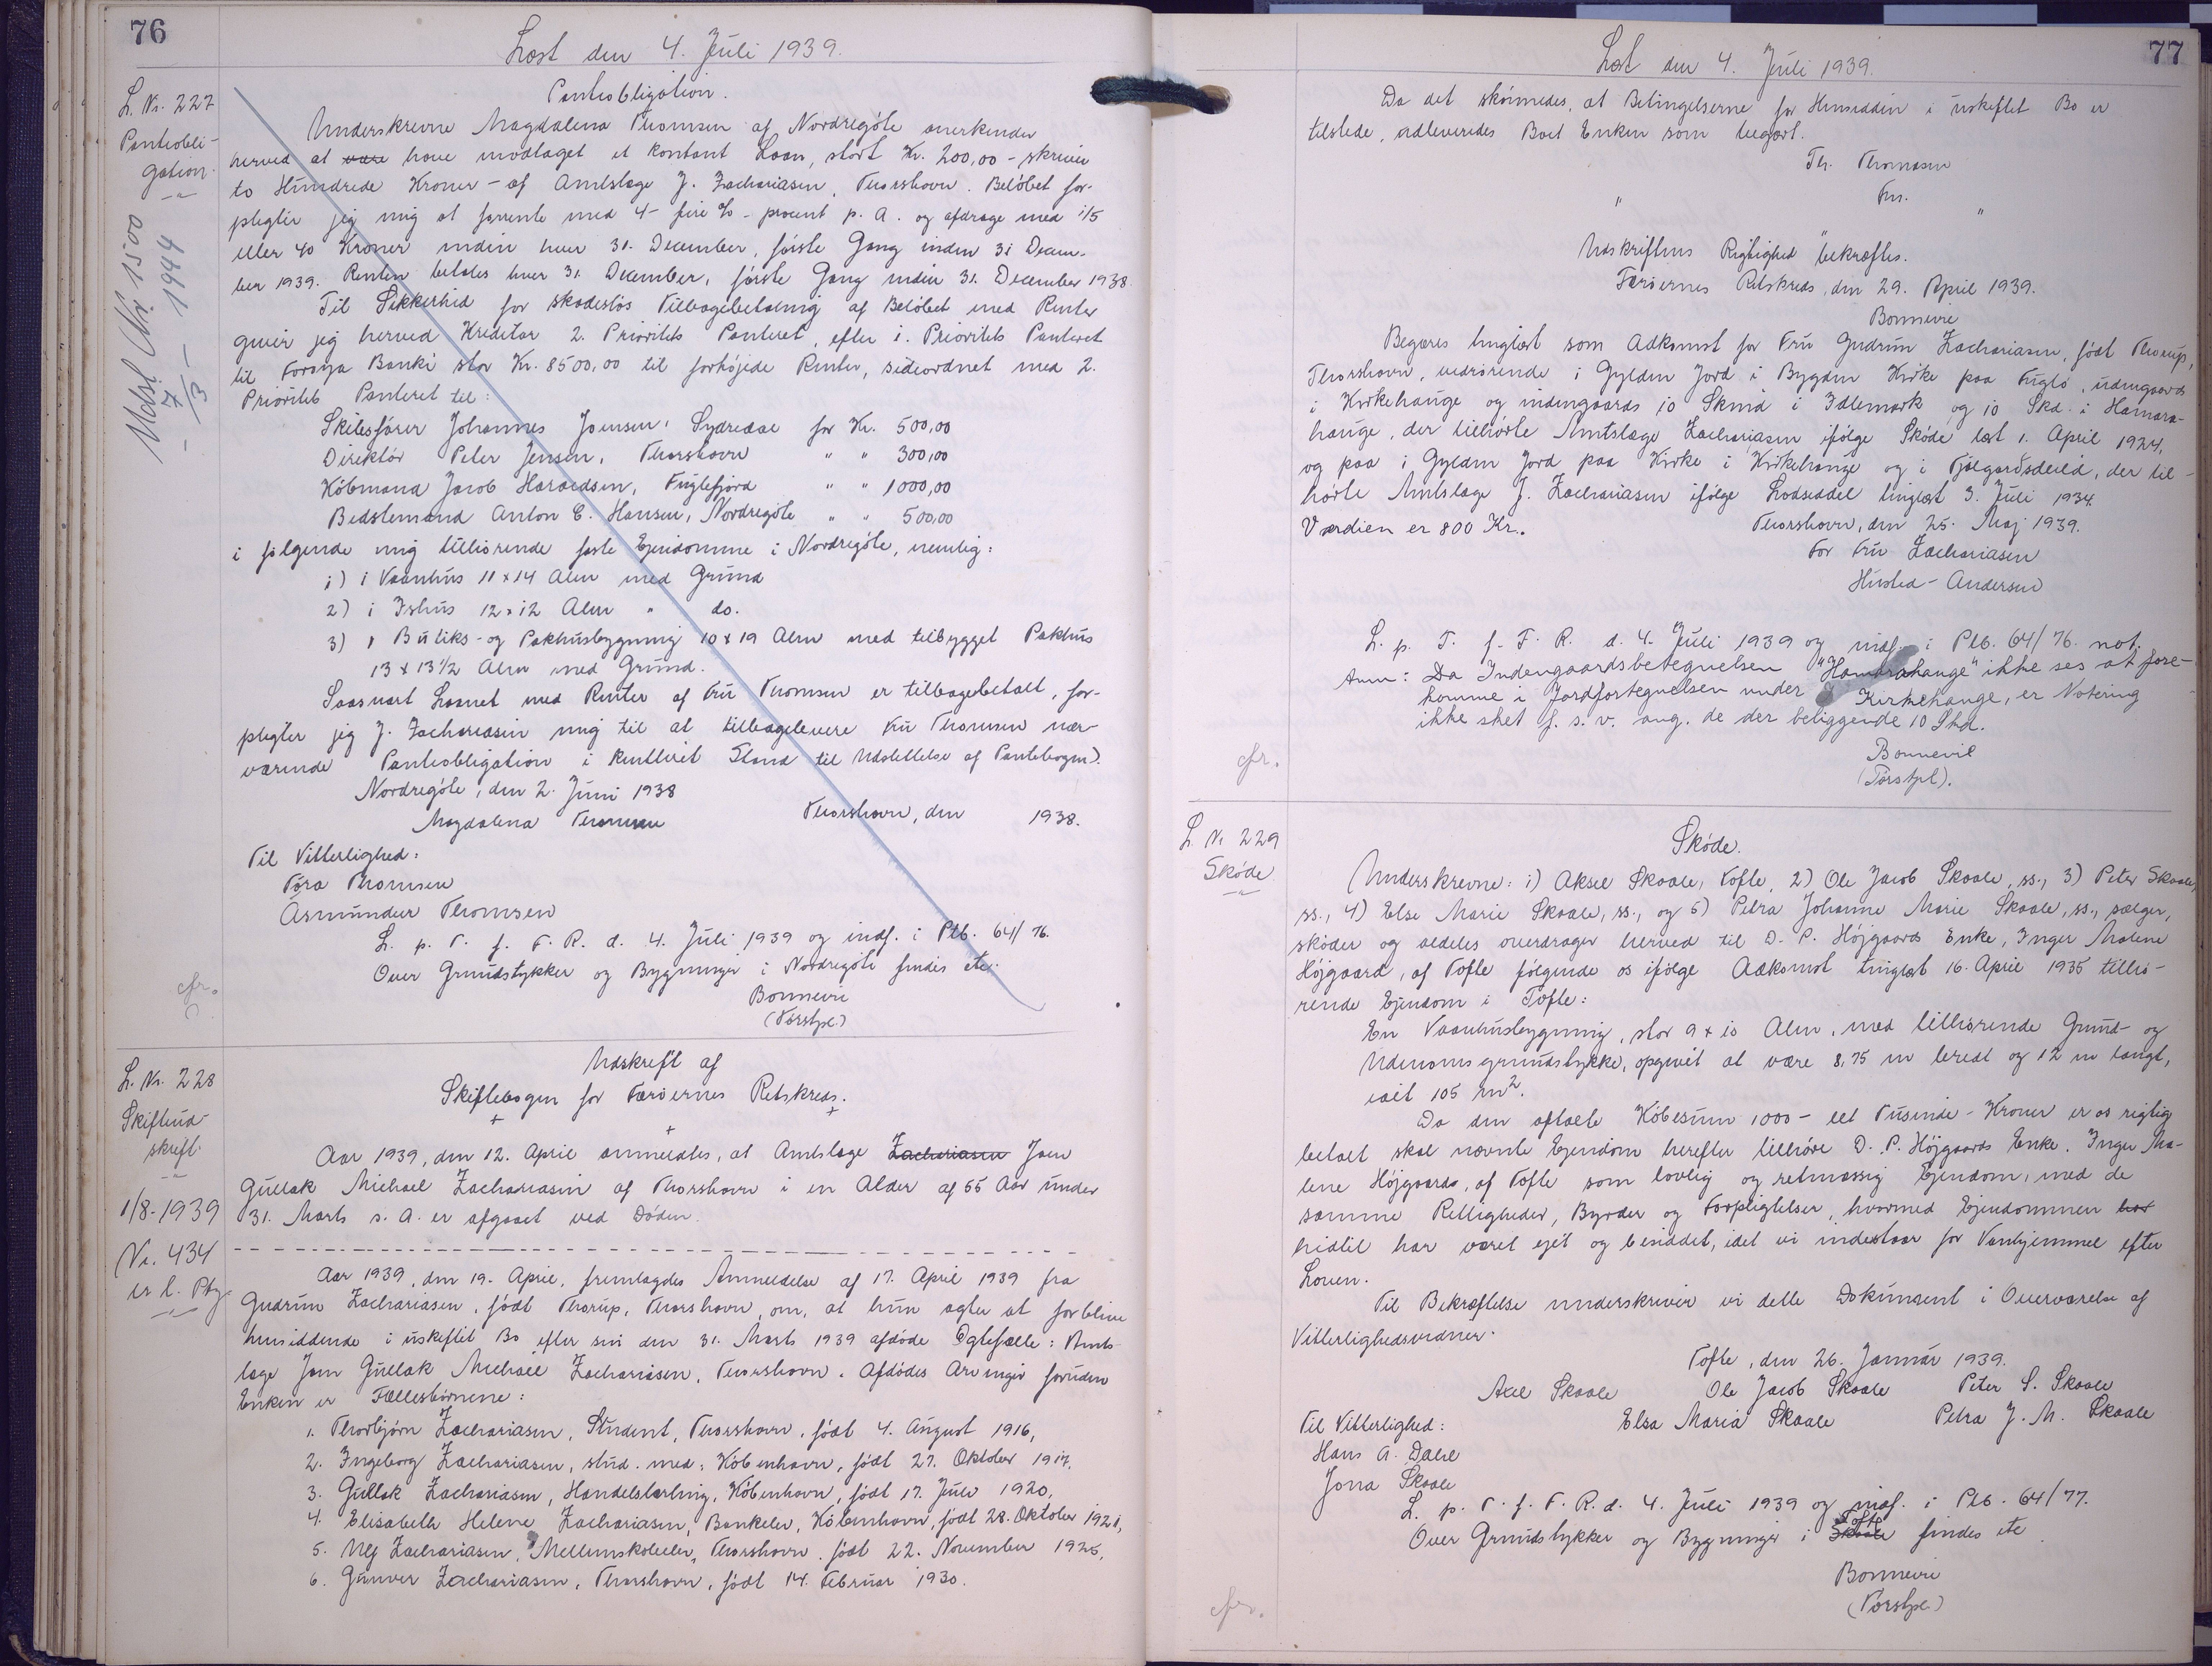 76
Læst den 4. Juli 1939.
L. Nr. 227
Panteobli-
gation.
Udsl. Nr. 1500
7/3 - 1944
Panteobligation.
Underskrevne Magdalena Thomsen af Nordregöte anerkender
herved at være have modtaget et kontant Laan, stort Kr. 200,00 - skriver
to Hundrede Kroner - af Amtslæge J. Zachariasen, Thorshavn. Beløbet for-
pligter jeg mig at forrente med 4 - fire % - procent p. A. og afdrage med 1/5
eller 40 Kroner inden hver 31. December, første Gang inden 31 Decem-
ber 1939. Renten betales hver 31. December, første Gang inden 31. December 1938.
Til Sikkerhed for skadesløs Tilbagebetaling af Beløbet med Renter
giver jeg herved Kreditor 2. Prioritets Panteret, efter 1. Prioritets Panteret
til Føroya Banki stor Kr. 8500,00 til forhøjede Renter, sideordnet med 2.
Prioritets Panteret til:
Skibsfører Johannes Joensen, Sydredal for Kr. 500,00
Direktör Peter Jensen, Thorshavn " " 300,00
Købmand Jacob Haraldsen, Fuglefjord " " 1000,00
Bedstemand Anton E. Hansen, Nordregöte " " 500,00
i følgende mig tilhørende faste Ejendomme i Nordregöte, nemlig:
1) 1 Vaanhus 11 x 14 Alen med Grund
2) 1 Ishus 12 x 12 Alen " do.
3) 1 Butiks- og Pakhusbygning 10 x 19 Alen med tilbygget Pakhus
13 x 13 1/2 Alen med Grund.
Saasnart Laanet med Renter af Fru Thomsen er tilbagebetalt, for-
pligter jeg J. Zachariasen mig til at tilbagelevere Fru Thomsen nær-
værende Panteobligation i kvitteret Stand til Udslettelse af Pantebogen).
Nordregöte, den 2. Juni 1938
Thorshavn, den 1938.
Magdalena Thomsen
Til Vitterlighed:
Tóra Thomsen
Ásmundur Thomsen
L. p. T. f. F. R. d. 4. Juli 1939 og indf. i Ptb. 64/76.
Over Grundstykker og Bygninger i Nordregöte findes etc.
Bonnevie
(Torstpl.)
cfr.
L. Nr. 228
Skifteud-
skrift.
1/8-1939
Nr. 434
Udskrift af
Skiftebogen for Færøernes Retskreds.
Aar 1939, den 12. April anmeldtes, at Amtslæge Zachariasen Joen
Gullak Michael Zachariasen af Thorshavn i en Alder af 55 Aar under
31. Marts s. A. er afgaaet ved Døden.
Aar 1939, den 19. April, fremlagdes Anmeldelse af 17. April 1939 fra
Gudrun Zachariasen, født Thorup, Thorshavn, om, at hun agter at forblive
hensiddende i uskiftet Bo efter sin den 31. Marts 1939 afdøde Ægtefælle: Amts-
læge Joen Gullak Michael Zachariasen, Thorshavn. Afdødes Arvinger foruden
Enken er Fællesbørnene:
1. Thorbjørn Zachariasen, Student, Thorshavn, født 4. August 1916,
2. Ingeborg Zachariasen, stud. med. København, født 27. Oktober 1917.
3. Gullak Zachariasen, Handelslærling, København, født 17. Juli 1920,
4. Elisabeth Helene Zachariasen, Bankelev, København, født 28. Oktober 1921,
5. Ulf Zachariasen, Mellemskoleelev, Thorshavn, født 22. November 1925,
6. Gunver Zachariasen, Thorshavn, født 14. Februar 1930.
77
Læst den 4. Juli 1939.
Da det skønnedes, at Betingelserne for Hensidden i uskiftet Bo er
tilstede, udleveredes Boet Enken som begært.
Th. Thomasen
Fm.
" "
Udskriftens Rigtighed bekræftes.
Færøernes Retskreds, den 29. April 1939.
Bonnevie
Begæres tinglæst som Adkomst for Fru Gudrun Zachariasen, født Thorup,
Thorshavn, vedrørende 1 Gylden Jord i Bygden Kirke paa Fuglø, udengaards
i Kirkehauge og indengaards 10 Skind i Idlemark og 10 Skd. i Hamara-
hauge, der tilhørte Amtslæge Zachariasen ifølge Skøde læst 1. April 1924,
og paa 1 Gylden Jord paa Kirke i Kirkehauge og i Fjølgardsdeild, der til-
hørte Amtslæge J. Zachariasen ifølge Lodseddel tinglæst 3. Juli 1934.
Værdien er 800 Kr..
Thorshavn, den 25. Maj 1939.
For Fru Zachariasen
Husted-Andersen
L. p. T. f. F. R. d. 4. Juli 1939 og indf. i Ptb. 64/76. not.
Anm: Da Indengaardsbetegnelsen "Hamarahauge" ikke ses at fore-
komme i Jordfortegnelsen under Kirkehauge, er Notering
ikke sket f. s. v. ang. de der beliggende 10 Skd.
Bonnevie
(Torstpl).
cfr.
L. Nr 229
Skøde
Skøde.
Underskrevne: 1) Aksel Skaale, Tofte, 2) Ole Jacob Skaale, ss., 3) Peter Skaale,
ss., 4) Else Marie Skaale, ss., og 5) Petra Johanne Marie Skaale, ss., sælger,
skøder og aldeles overdrager herved til D. P. Højgaards Enke, Inger Malene
Højgaard, af Tofte følgende os ifølge Adkomst tinglæst 16. April 1935 tilhø-
rende Ejendom i Tofte:
En Vaanhusbygning, stor 9 x 10 Alen, med tilhørende Grund- og
Udenomsgrundstykke, opgivet at være 8,75 m bredt og 12 m langt,
ialt 105 m2.
Da den aftalte Købesum 1000 - eet Tusinde - Kroner er os rigtig
betalt skal nævnte Ejendom herefter tilhøre D. P. Højgaards Enke, Inger Ma-
lene Højgaard, af Tofte som lovlig og retmæssig Ejendom, med de
samme Rettigheder, Byrder og Forpligtelser, hvormed Ejendommen har
hidtil har været ejet og besiddet, idet vi indestaar for Vanhjemmel efter
Loven.
Til Bekræftelse underskriver vi dette Dokument i Overværelse af
Vitterlighedsvidner.
Tofte, den 26. Januar 1939.
Axel Skaale Ole Jacob Skaale Peter S. Skaale
Til Vitterlighed: Elsa Maria Skaale Petra J. M. Skaale
Hans A. Dahl
Jona Skaale
L. p. T. f. F. R. d. 4. Juli 1939 og indf. i Ptb. 64/77.
Tofte
Over Grundstykker og Bygninger i Skaale findes etc
Bonnevie
(Torstpl.)
cfr.